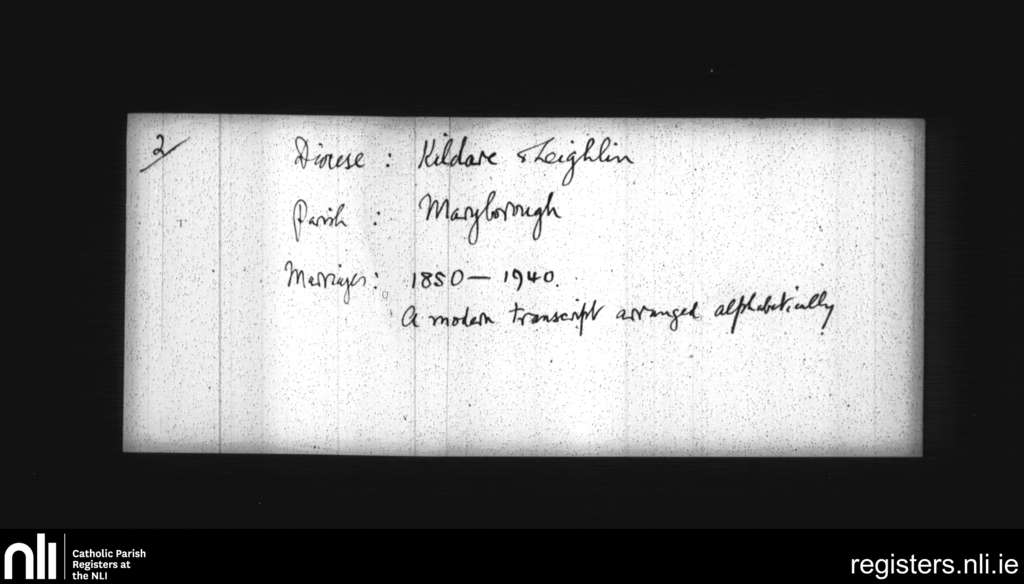 2/
Diocese : Kildare & Leighlin
Parish : Maryborough
Marriages : 1850 — 1940.
A modern transcript arranged alphabetically
nli
Catholic Parish
Registers at
the NLI
registers.nli.ie